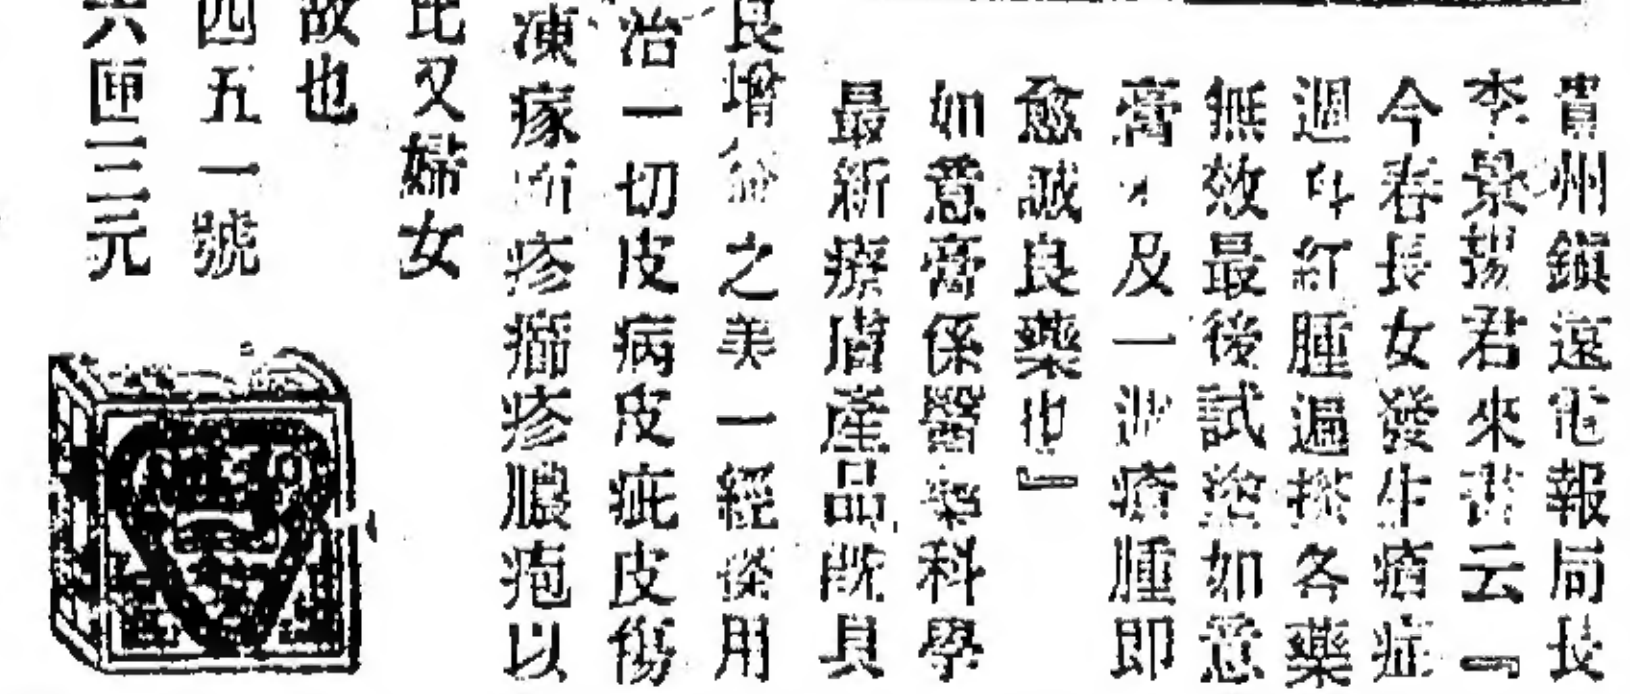 貴州鎮遠電報局長
李景揚君來書云『
今春長女發生瘡症
週身紅腫遍搽各藥
無效最後試塗如意
膏及一次瘡腫即
愈誠良藥也』
如意膏係醫藥科學
最新療膚產品既具
良增益之美一經搽用
治一切皮病皮疵皮傷
凍瘃疥疹癤疹膿疱以
比又婦女
故也
四五一號
六匣三元